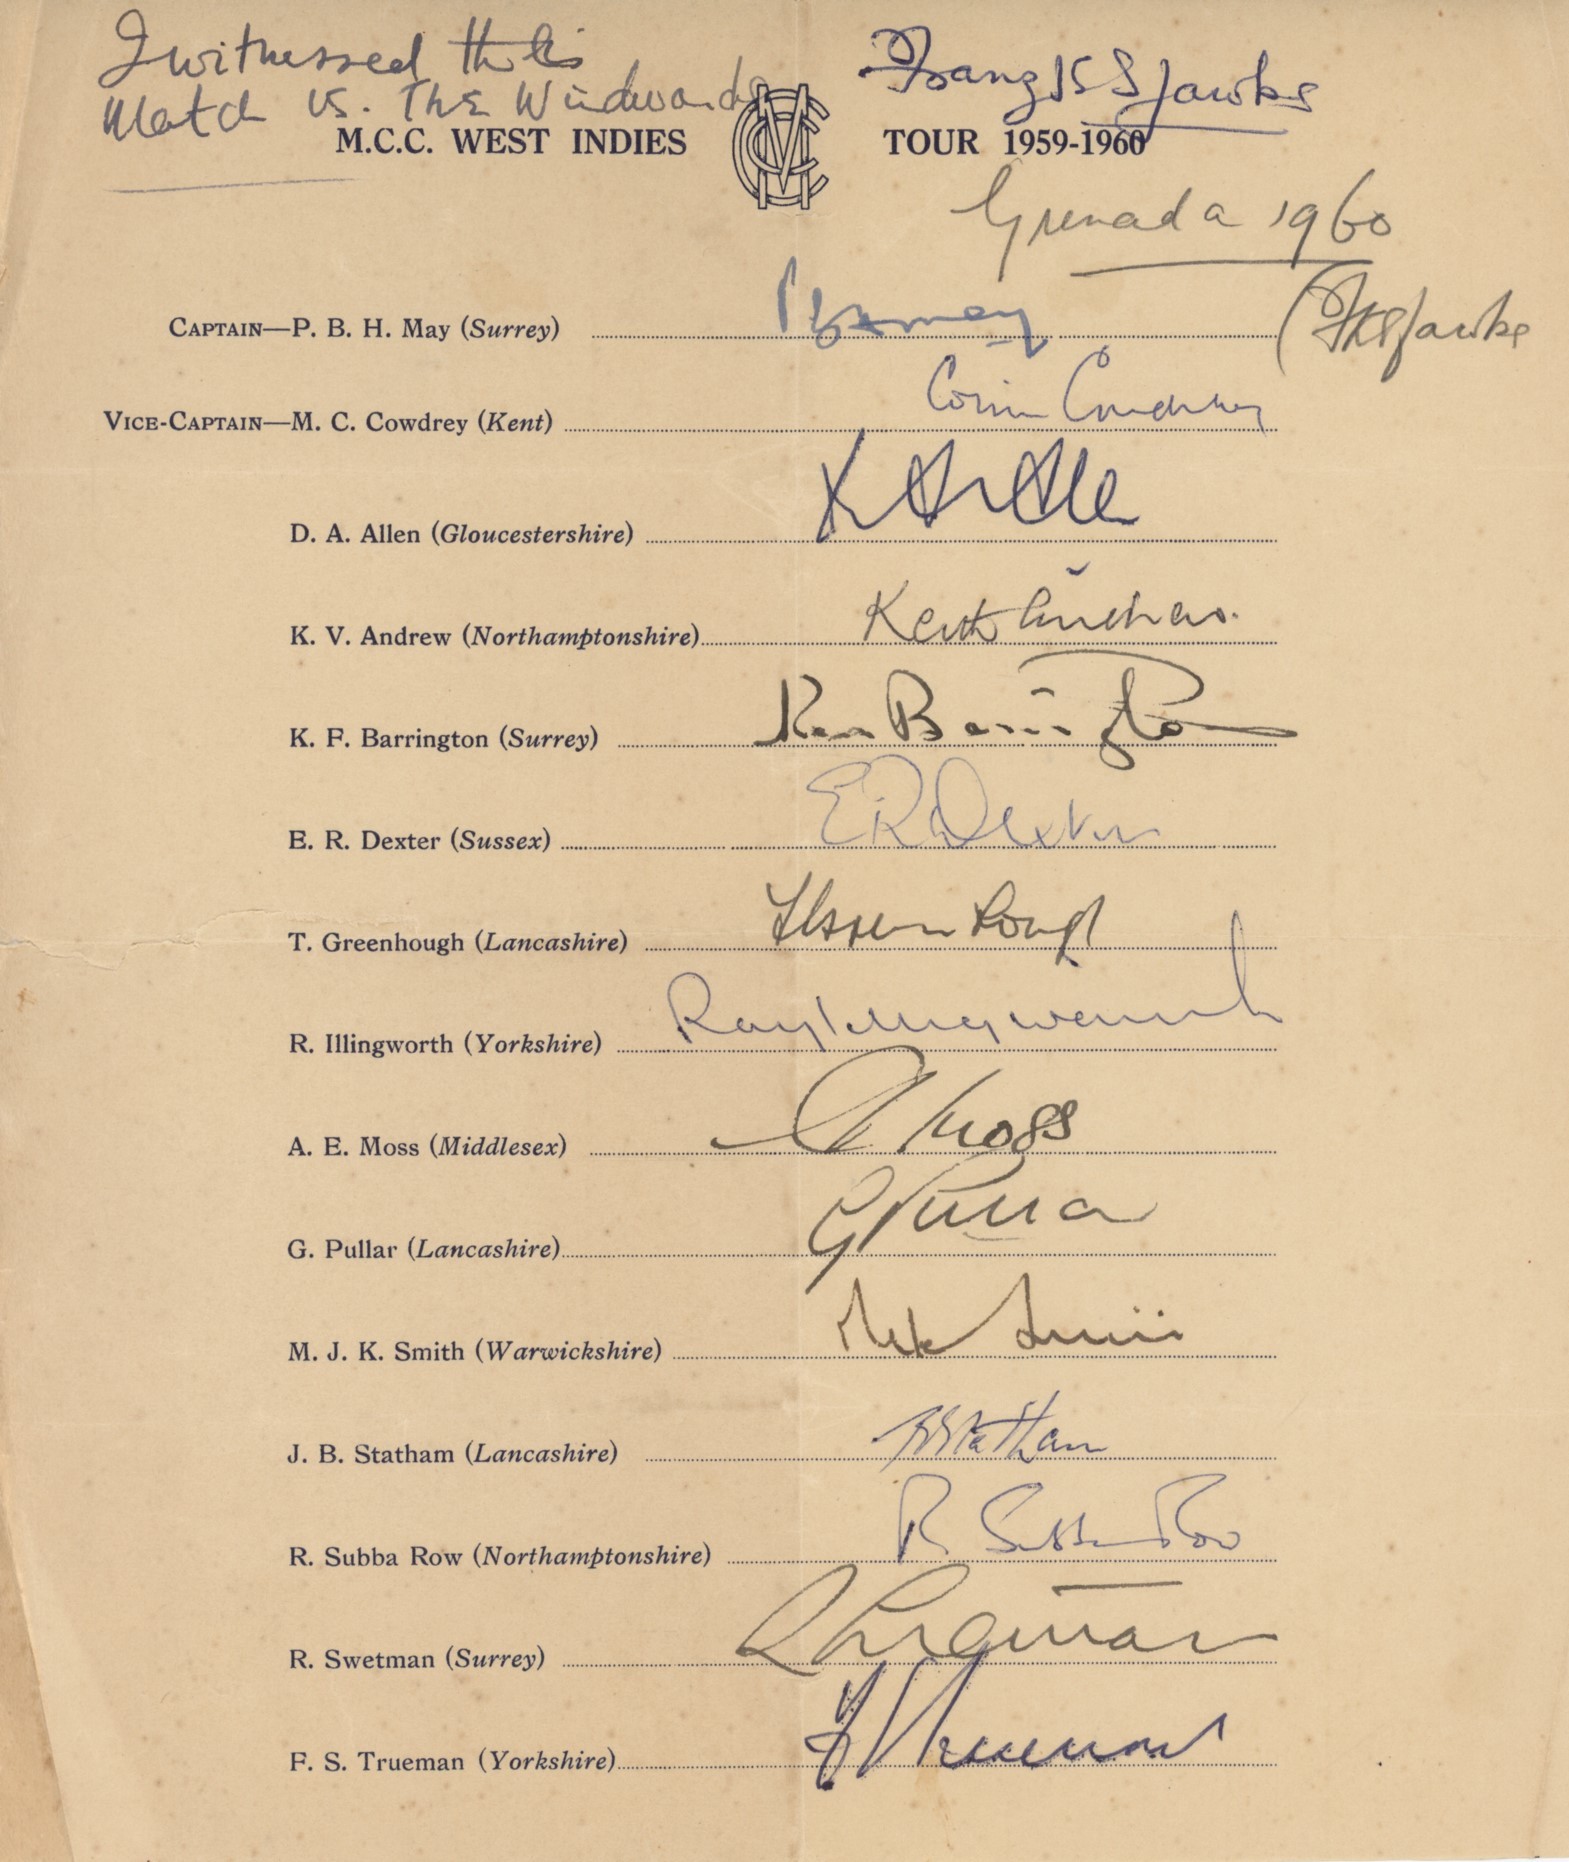 I witnessed this
Match vs. The Windwards
M.C.C. WEST INDIES MCC TOUR 1959-1960
Grenada 1960
CAPTAIN—P. B. H. May (Surrey) PBH May
VICE-CAPTAIN—M. C. Cowdrey (Kent) Colin Cowdrey
D. A. Allen (Gloucestershire)
K. V. Andrew (Northamptonshire) Keith Andrew.
K. F. Barrington (Surrey) Ken Barrington
E. R. Dexter (Sussex) E R Dexter
T. Greenhough (Lancashire) T Greenhough
R. Illingworth (Yorkshire) Ray Illingworth
A. E. Moss (Middlesex) A E Moss
G. Pullar (Lancashire) G Pullar
M. J. K. Smith (Warwickshire) Mike Smith
J. B. Statham (Lancashire) B Statham
R. Subba Row (Northamptonshire) R Subba Row
R. Swetman (Surrey) R Swetman
F. S. Trueman (Yorkshire) F S Trueman